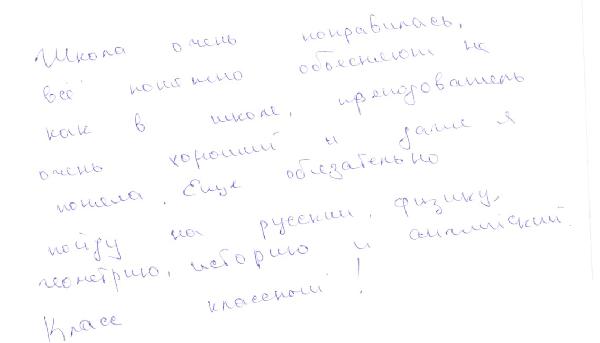 Школа очень понравилась,
всё понятно объесняют не
как в школе, преподователь
очень хороший и даже я
поняла. Еще обязательно
пойду на русский, физику,
геометрию, историю и английский.
Класс классный!